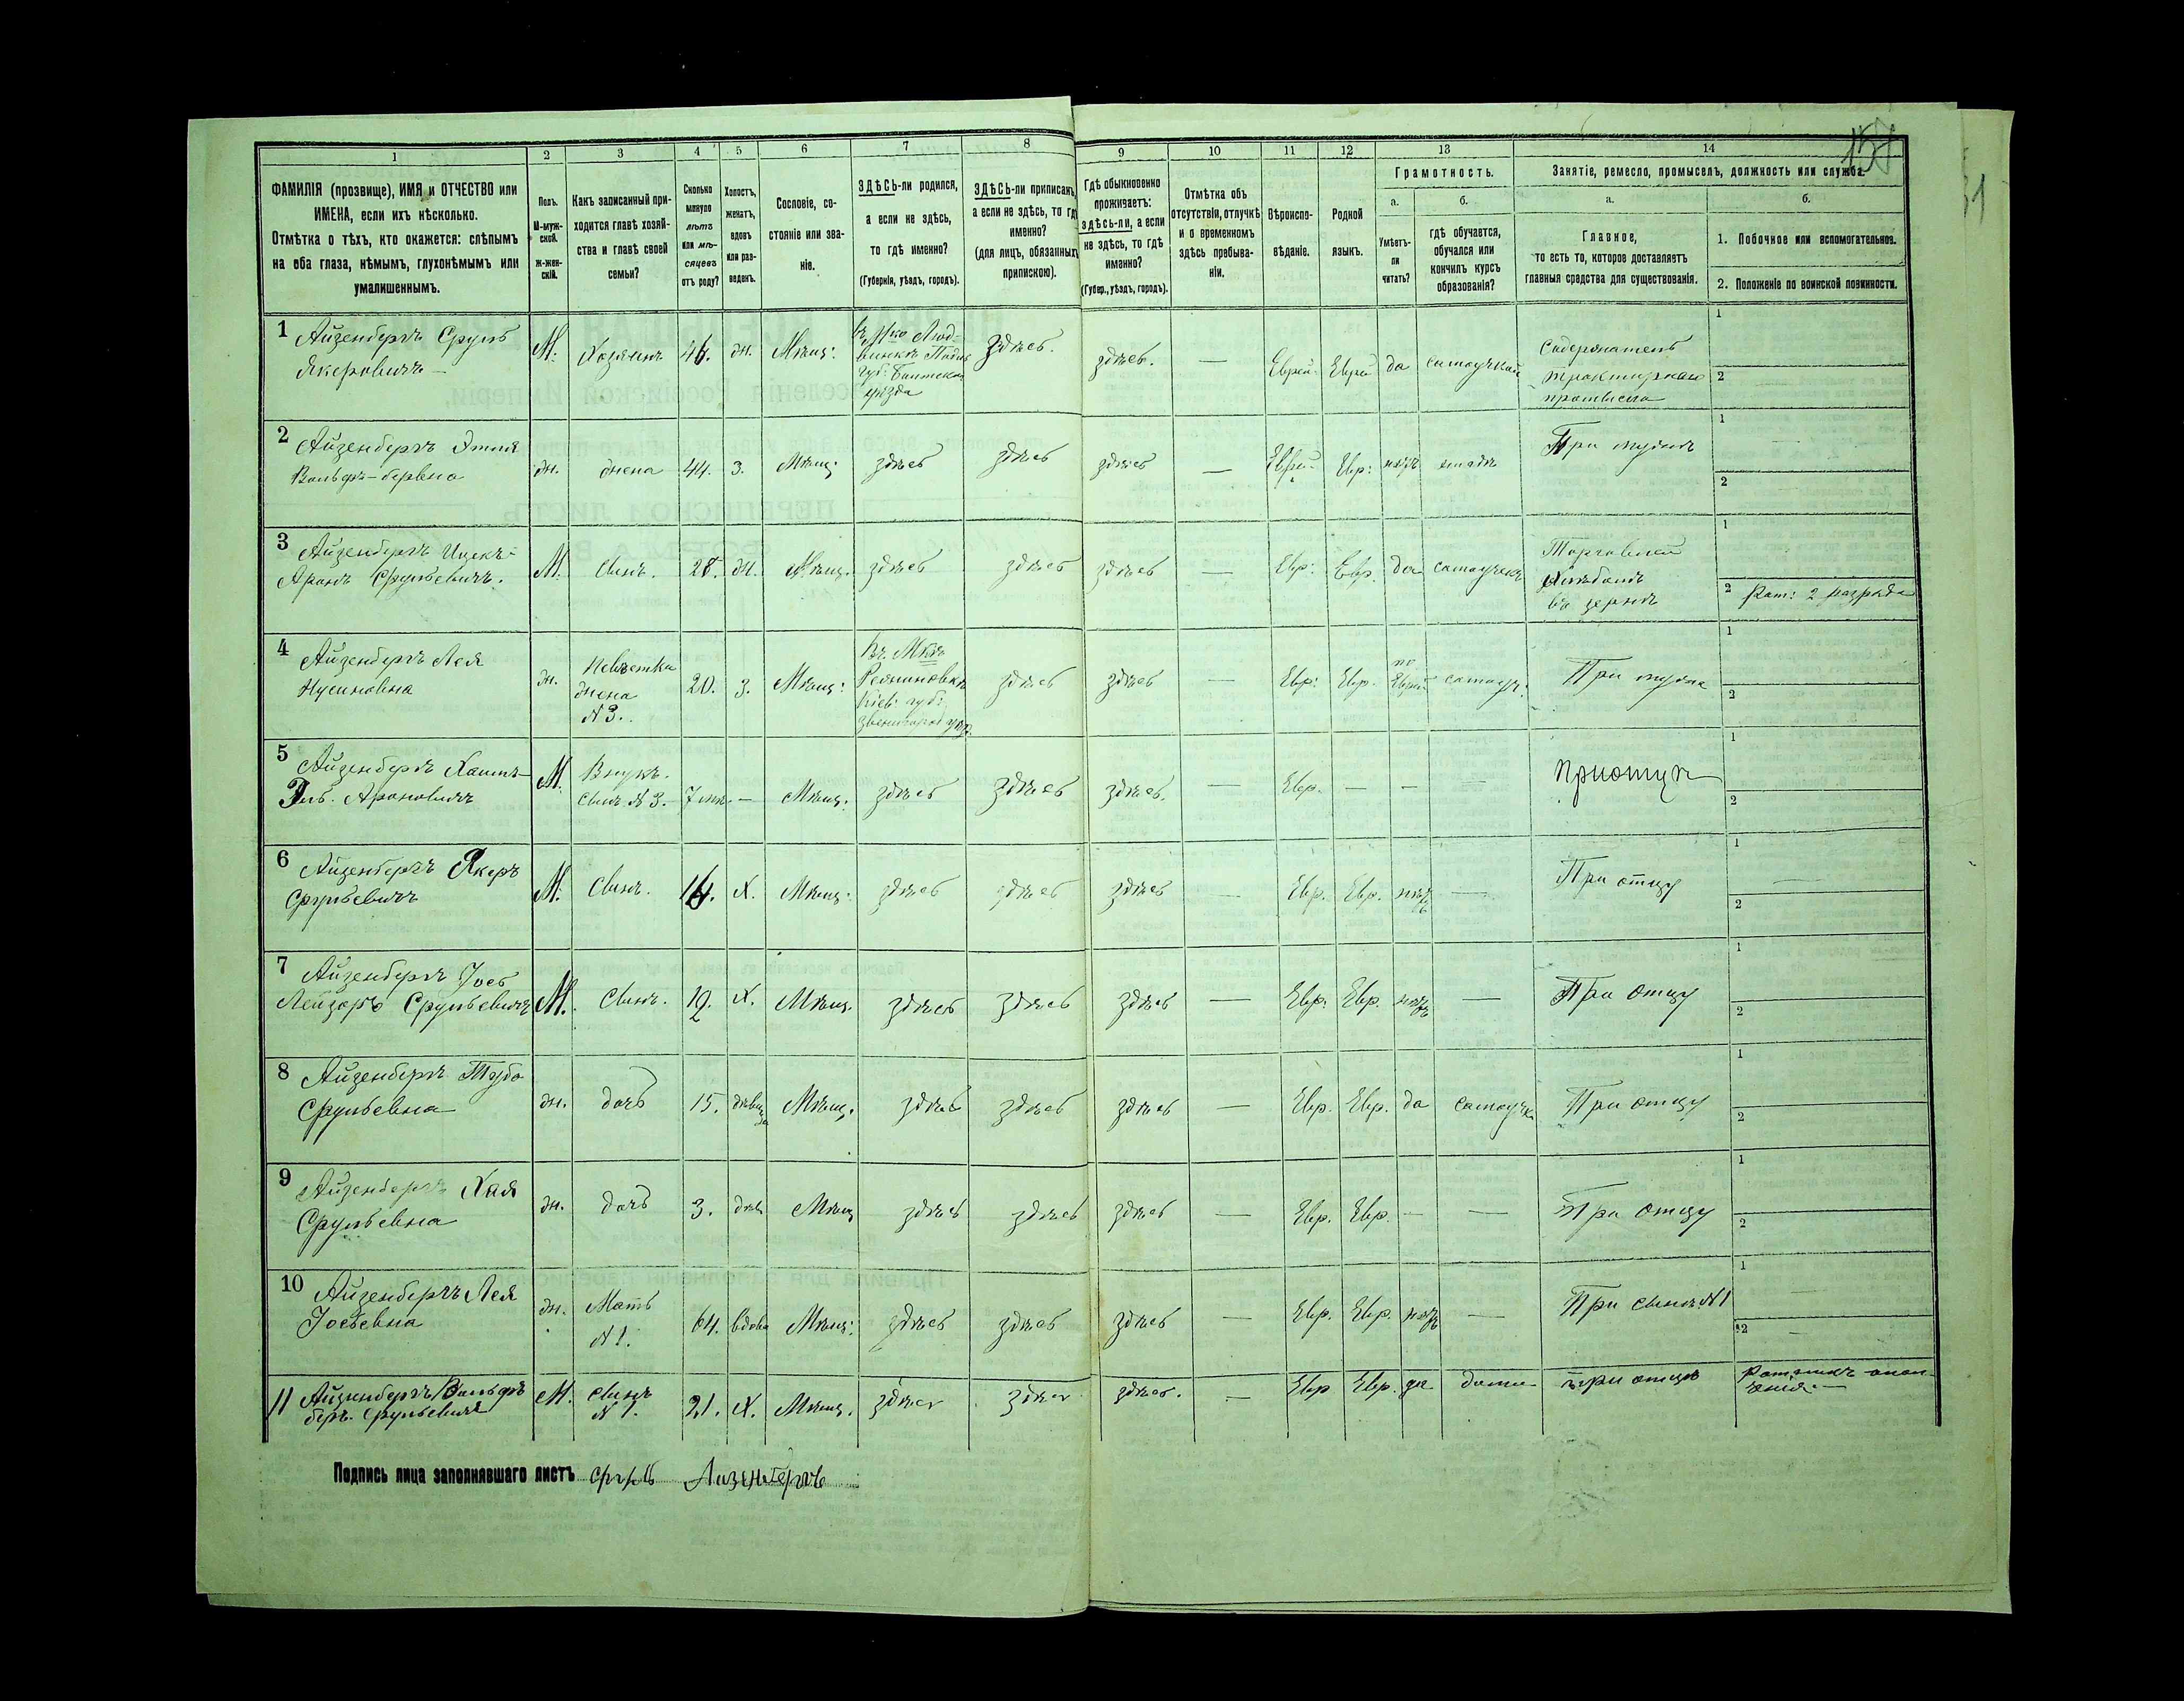 157
31
1 2 3 4 5 6 7 8 9 10 11 12 13 14
ФАМИЛІЯ (прозвище), ИМЯ и ОТЧЕСТВО или
ИМЕНА, если ихъ нѣсколько.
Отмѣтка о тѣхъ, кто окажется: слѣпымъ
на оба глаза, нѣмымъ, глухонѣмымъ или
умалишеннымъ.
Полъ.
М-муж-
ской.
Ж-жен-
скій.
Какъ записанный при-
ходится главѣ хозяй-
ства и главѣ своей
семьи?
Сколько
минуло
лѣтъ
или мѣ-
сяцевъ
отъ роду?
Холостъ,
женатъ,
вдовъ
или раз-
веденъ.
Сословіе, со-
стояніе или зва-
ніе.
ЗДѢСЬ-ли родился,
а если не здѣсь,
то гдѣ именно?
(Губернія, уѣздъ, городъ).
ЗДѢСЬ-ли приписанъ,
а если не здѣсь, то гдѣ
именно?
(для лицъ, обязанныхъ
припискою).
Гдѣ обыкновенно
проживаетъ:
здѣсь-ли, а если
не здѣсь, то гдѣ
именно?
(Губер., уѣздъ, городъ).
Отмѣтка объ
отсутствіи, отлучкѣ
и о временномъ
здѣсь пребыва-
ніи.
Вѣроиспо-
вѣданіе.
Родной
языкъ.
Грамотность.
а.
Умѣетъ-
ли
читать?
б.
гдѣ обучается,
обучался или
кончилъ курсъ
образованія?
Занятіе, ремесло, промыселъ, должность или служба.
а.
Главное,
то есть то, которое доставляетъ
главныя средства для существованія.
б.
1. Побочное или вспомогательное.
2. Положеніе по воинской повинности.
1 Айзенбергъ Сруль
Якеровичъ
М. Хозяинъ 46. ж. Мѣщ:
губ: Балтска
уѣзда
здѣсь. здѣсь. — Еврей Еврей да
Содержатель
трактирнаго
промысла
1
2
2 Айзенбергъ Этля
Вольфъ-беровна
ж. жена 44. з. Мѣщ: здѣсь здѣсь здѣсь — Еврей Евр: нѣтъ
При мужѣ
1
2
3 Айзенбергъ Ицекъ-
Аронъ Срульевичъ.
М. Сынъ. 28. ж. Мѣщ. здѣсь здѣсь здѣсь — Евр: Евр. да самоучкъ
Торговлей
хлѣбомъ
въ зернѣ
1
2 Рат: 2 разряда
4 Айзенбергъ Лея
Нусиновна
ж. Невѣстка
жена
№ 3.
20. з. Мѣщ:
Кіев: губ:
здѣсь здѣсь — Евр: Евр. по
Еврей самоуч:
При мужѣ
1
2
5 Айзенбергъ Хаимъ-
Ароновичъ
М. Внукъ.
сынъ № 3.
— Мѣщ. здѣсь здѣсь здѣсь. — Евр. — — —
1
2
6 Айзенбергъ Якеръ
Срульевичъ
М. Сынъ. 14. Х. Мѣщ: здѣсь здѣсь здѣсь — Евр. Евр. нѣтъ —
При отцу
1
2
7 Айзенбергъ Іось
Лейзоръ Срульевичъ
М. Сынъ. Х. Мѣщ. здѣсь здѣсь здѣсь — Евр. Евр. нѣтъ —
При отцу
1
2
8 Айзенбергъ Тауба
Срульевна
ж. дочь 15. дѣвица Мѣщ. здѣсь здѣсь здѣсь — Евр. Евр. да самоучка
При отцу
1
2
9 Айзенбергъ Хая
Срульевна
ж. дочь 3. дѣв Мѣщ здѣсь здѣсь здѣсь — Евр. Евр. — —
При отцу
1
2
10 Айзенбергъ Лея
Іосьевна
ж. Мать
№ 1.
64. вдова Мѣщ: здѣсь здѣсь здѣсь — Евр. Евр. нѣтъ —
При сынѣ № 1
1
2
11 Айзенбергъ Вольфъ
беръ. Срульевичъ
М. сынъ
№ 1.
21. Х. Мѣщ. здѣсь здѣсь здѣсь. — Евр Евр. да дома при отцѣ
Ратникъ опол-
ченія
Подпись лица заполнявшаго листъ Сруль Айзенбергъ